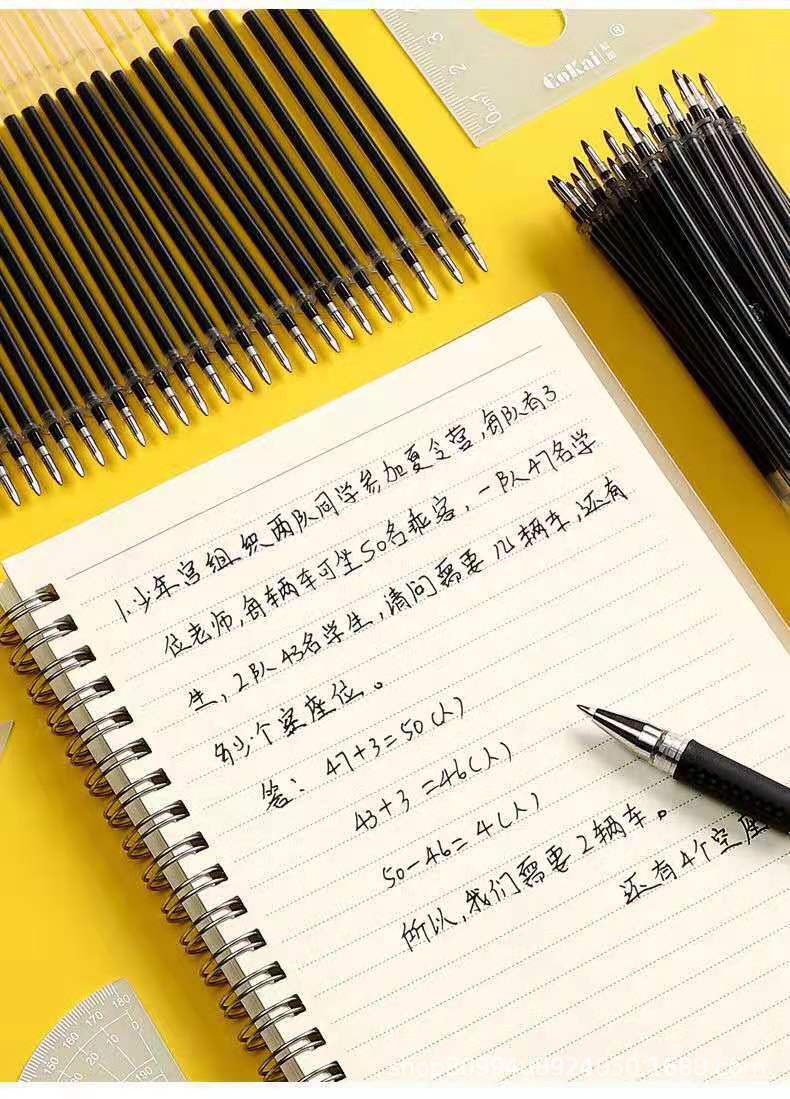 3
2
0cm1
CoKai®
1.少年宫组织两队同学参加夏令营,每队有3
位老师,每辆车可坐50名乘客,一队47名学
生,2队43名学生,请问需要几辆车,还有
多少个空座位。
答: 47+3=50(人)
43+3=46(人)
50-46=4(人)
所以,我们需要2辆车。
还有4个空座
180
170
160
150
0
10
20
30
180
190